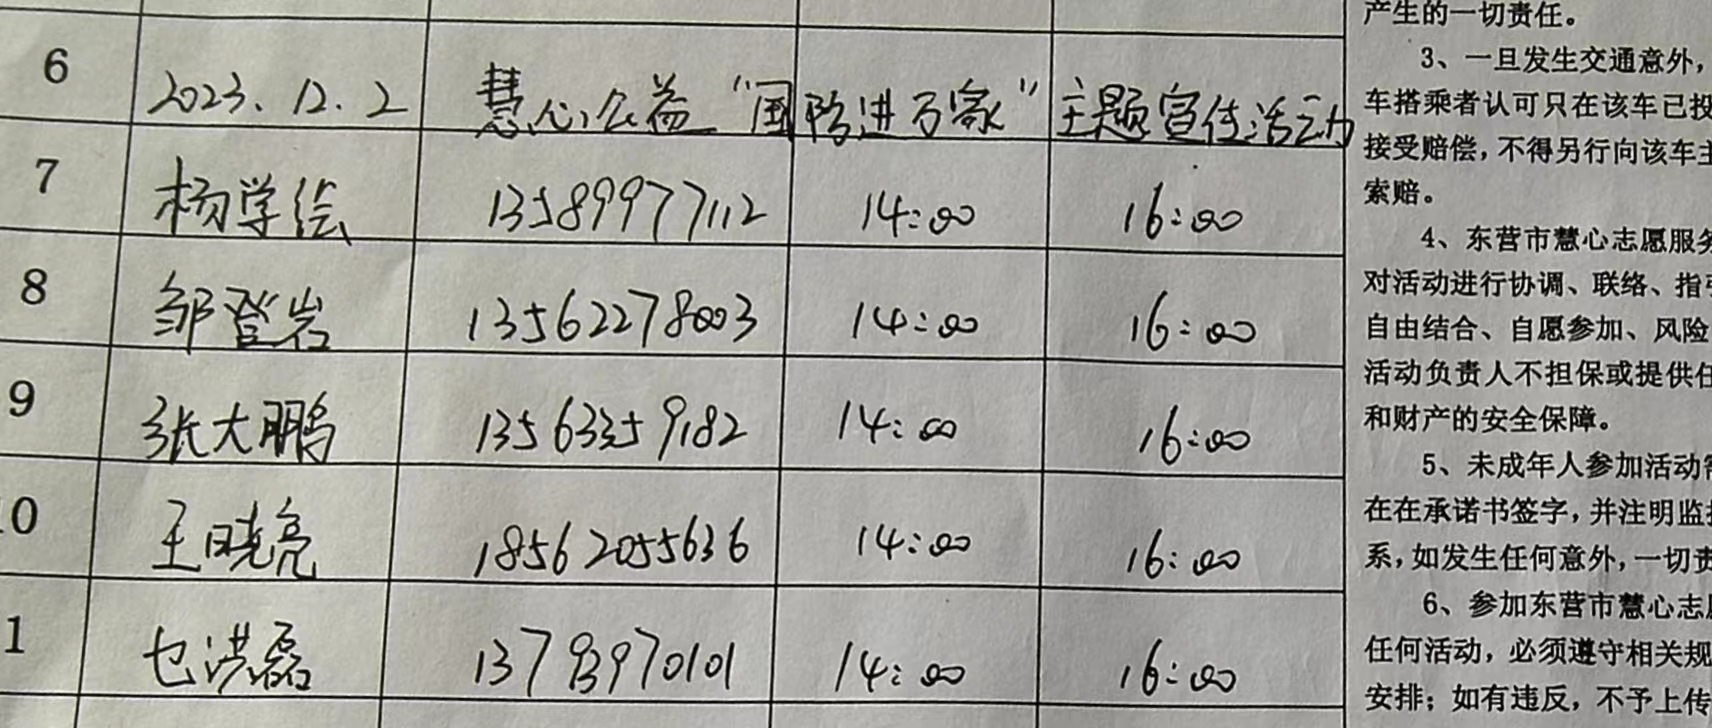 6 2023.12.2 慧心公益“国防进万家”主题宣传活动
7 杨学绘 13589977112 14:00 16:00
8 邹登岩 13562278003 14:00 16:00
9 张大鹏 13563359182 14:00 16:00
0 王晓亮 18562055636 14:00 16:00
1 七洪磊 13793970101 14:00 16:00
产生的一切责任。
3、一旦发生交通意外，
车搭乘者认可只在该车已投
接受赔偿，不得另行向该车主
索赔。
4、东营市慧心志愿服务
对活动进行协调、联络、指引
自由结合、自愿参加、风险
活动负责人不担保或提供任
和财产的安全保障。
5、未成年人参加活动需
在在承诺书签字，并注明监护
系，如发生任何意外，一切责
6、参加东营市慧心志愿
任何活动，必须遵守相关规
安排；如有违反，不予上传